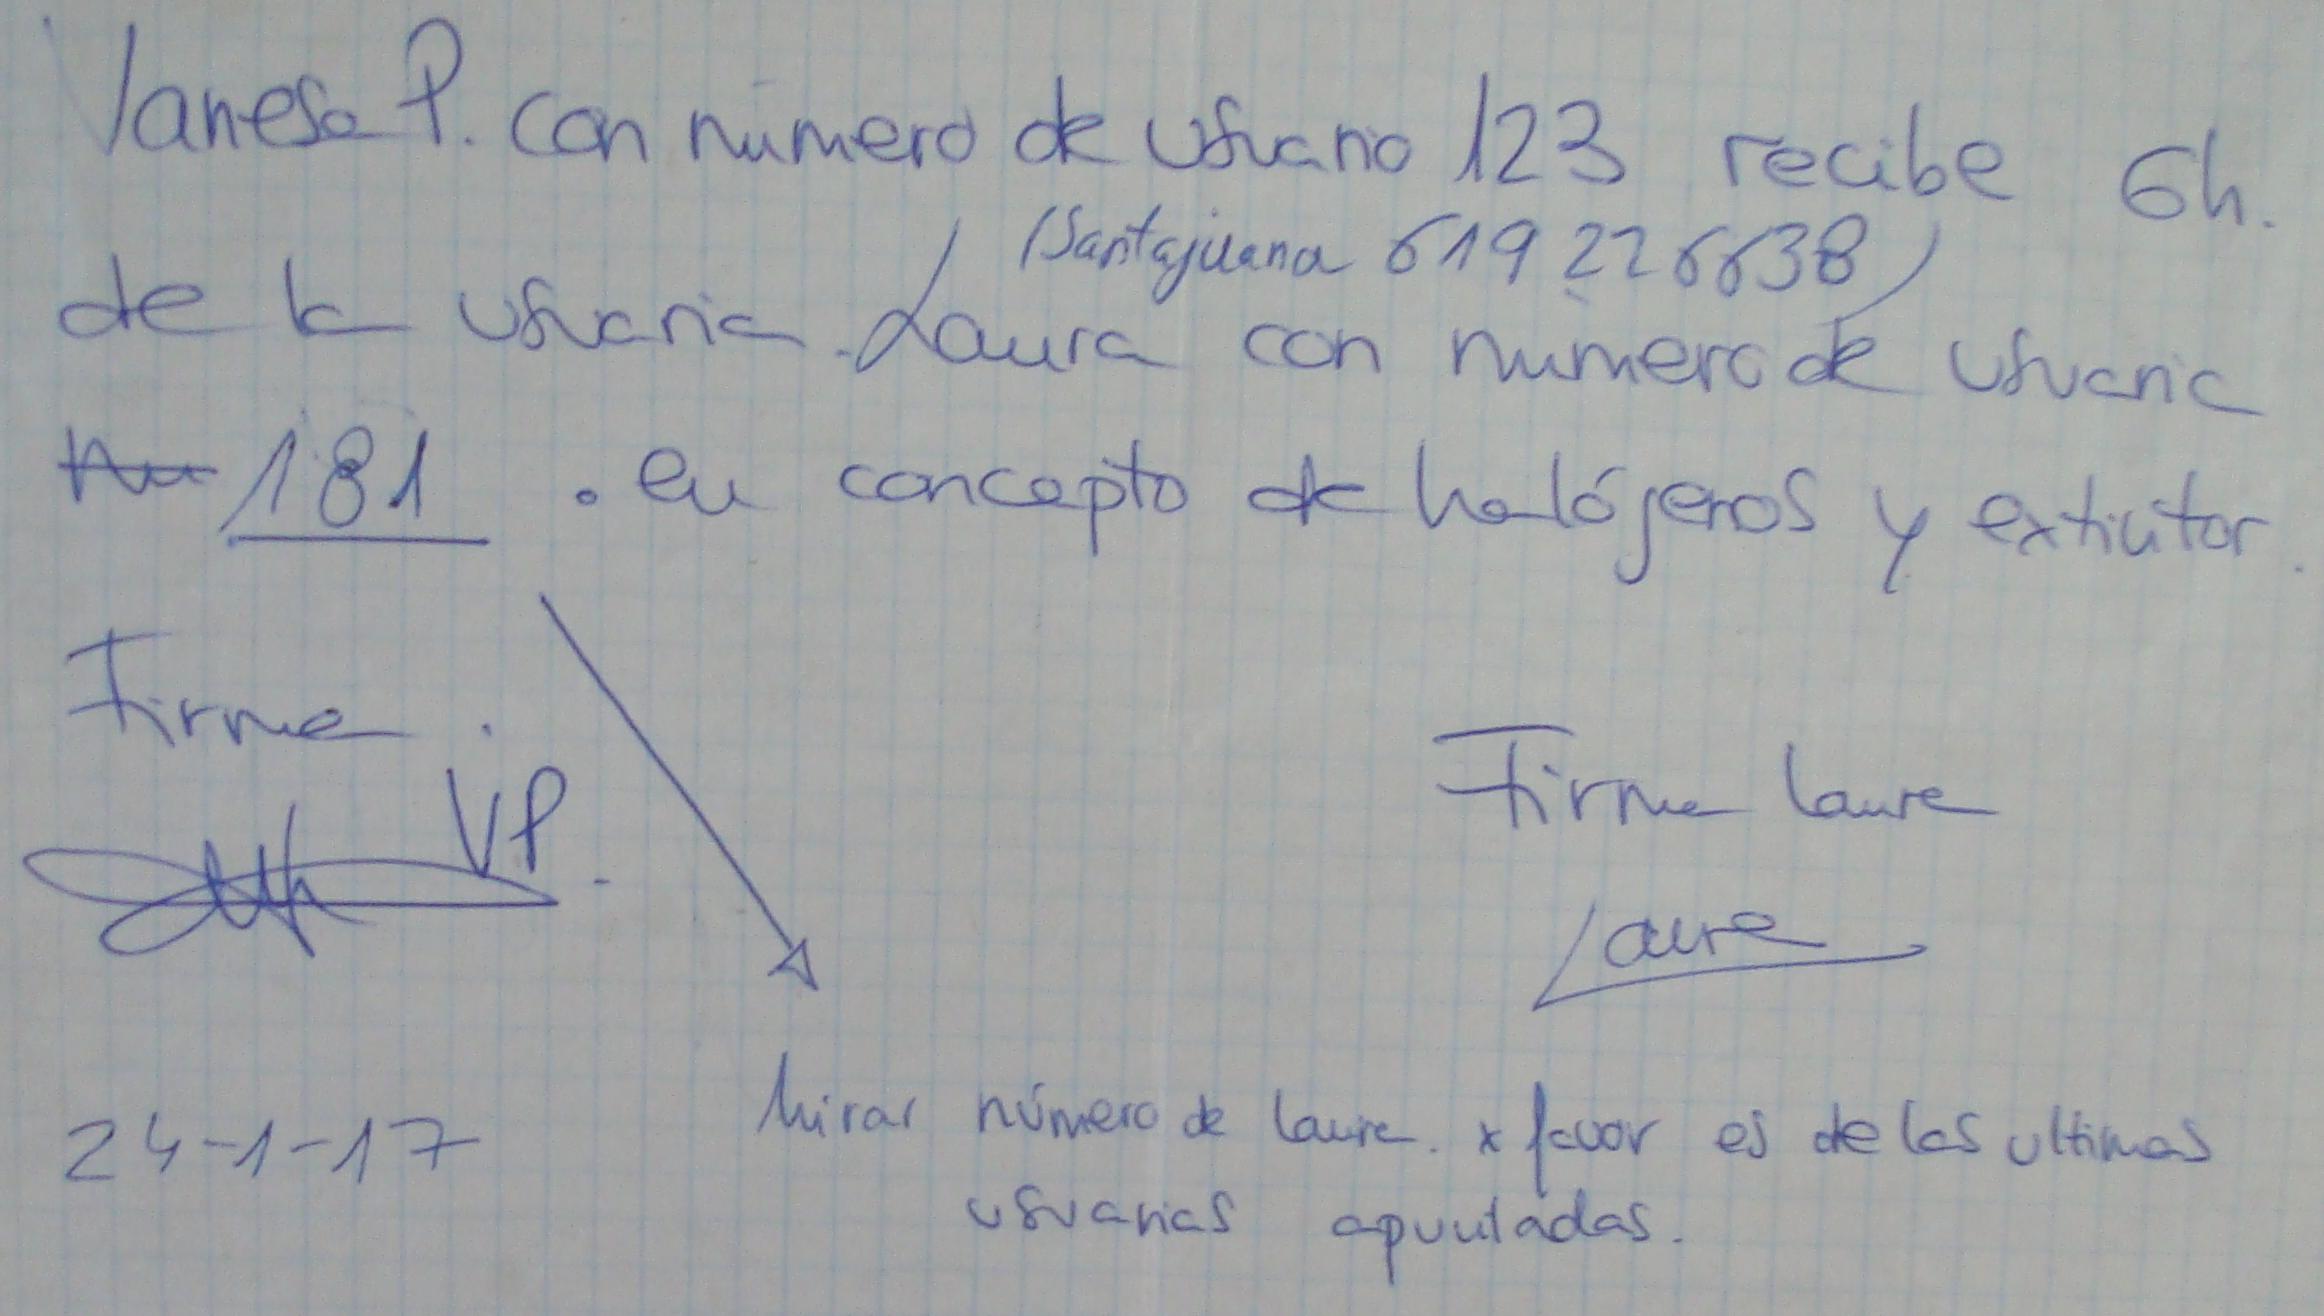 Vanesa P. con número de usuario 123 recibe 6h.
(Santajuana 619 226638)
de la usuaria Laura con número de usuaria
181 . en concepto de halógenos y extintor.
Firma.
VP.
Firma Laura
Laura
24-1-17
Mirar número de Laura. x favor es de las ultimas
usuarias apuntadas.